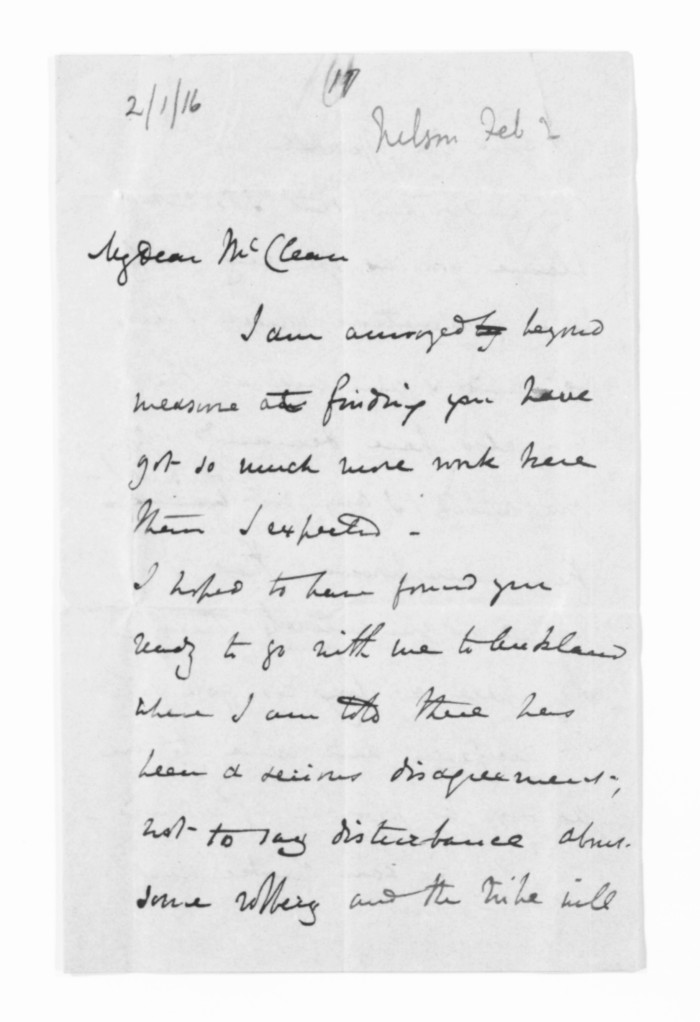 2/1/16
(17
Nelson Feb 2
My Dear McClean
I am annoyed by beyond
measure at finding you have
got so much more work here
than I expected -
I hoped to have found you
ready to go with me to Auckland
where I am told there has
been a serious disagreement,
not to say disturbance about
some robbery and the tribe will